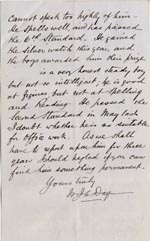 cannot speak too highly of him.
He spells well, and has passed
the 6th Standard. He gained
the silver watch this year, and
the boys awarded him their prize.
is a very honest steady boy
but not so intelligent, he is good
at figures but not at Spelling
and Reading. He passed the
Second Standard in May last
I doubt whether he is as suitable
for office work. As we shall
have to what upon him for three
years I should be glad if you can
find him something permanent.
Yours truly
Day